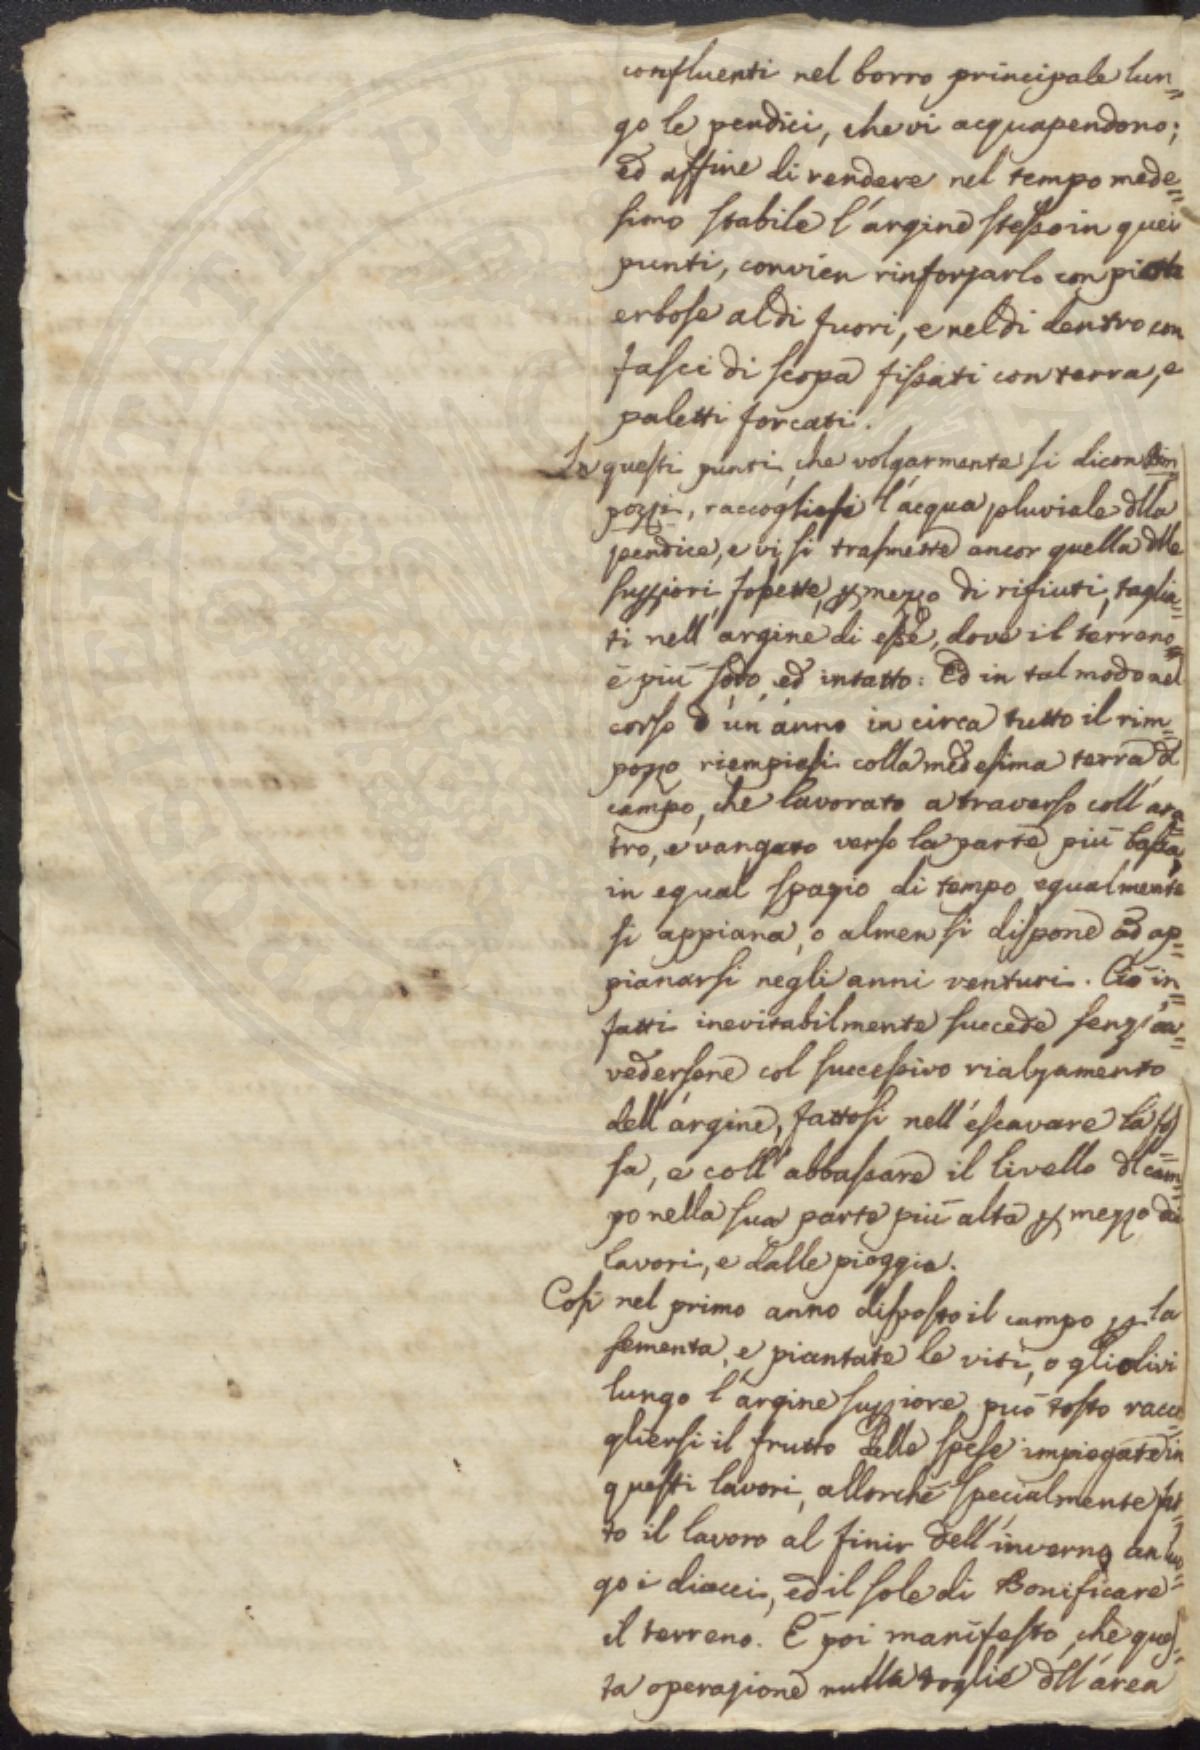 confluenti nel borro principale lun=
go le pendici, che vi acquapendono;
ed affine di rendere nel tempo mede=
simo stabile l'argine stesso in quei
punti, convien rinforzarlo con piote
erbose al di fuori, e nel di dentro con
fasci di scopa fissati con terra, e
paletti forcati.
In questi punti, che volgarmente si dicon Rim
pozzi, raccogliesi l'acqua pluviale dlla
pendice, e vi si trasmette ancor quella dlle
suppiori fossette, p mezzo di rifiuti, taglia=
ti nell'argine di esse, dove il terreno
è più sodo, ed intatto: Ed in tal modo nel
corso d'un'anno in circa tutto il rim=
pozzo riempiesi colla medesima terra dl
campo, che lavorato a traverso coll'ara=
tro, e vangato verso la parte più bassa,
in egual spazio di tempo egualmente
si appiana, o almen si dispone ad ap=
pianarsi negli anni venturi. Ciò in=
fatti inevitabilmente succede senz'av=
vedersene col successivo rialzamento
dell'argine, fattosi nell'escavare la fos
sa, e coll'abbassare il livello dl cam=
po nella sua parte più alta p mezzo dei
lavori, e dalle pioggie.
Così nel primo anno disposto il campo p la
sementa, e piantate le viti, o gli olivi
lungo l'argine suppiore, può tosto racco=
gliersi il frutto delle spese impiegate in
questi lavori, allorchè specialmente fat=
to il lavoro al finir dell'inverno, an luo=
go i diacci, ed il sole di Bonificare
il terreno. È poi manifesto, che ques=
ta operazione nulla toglie dll'area